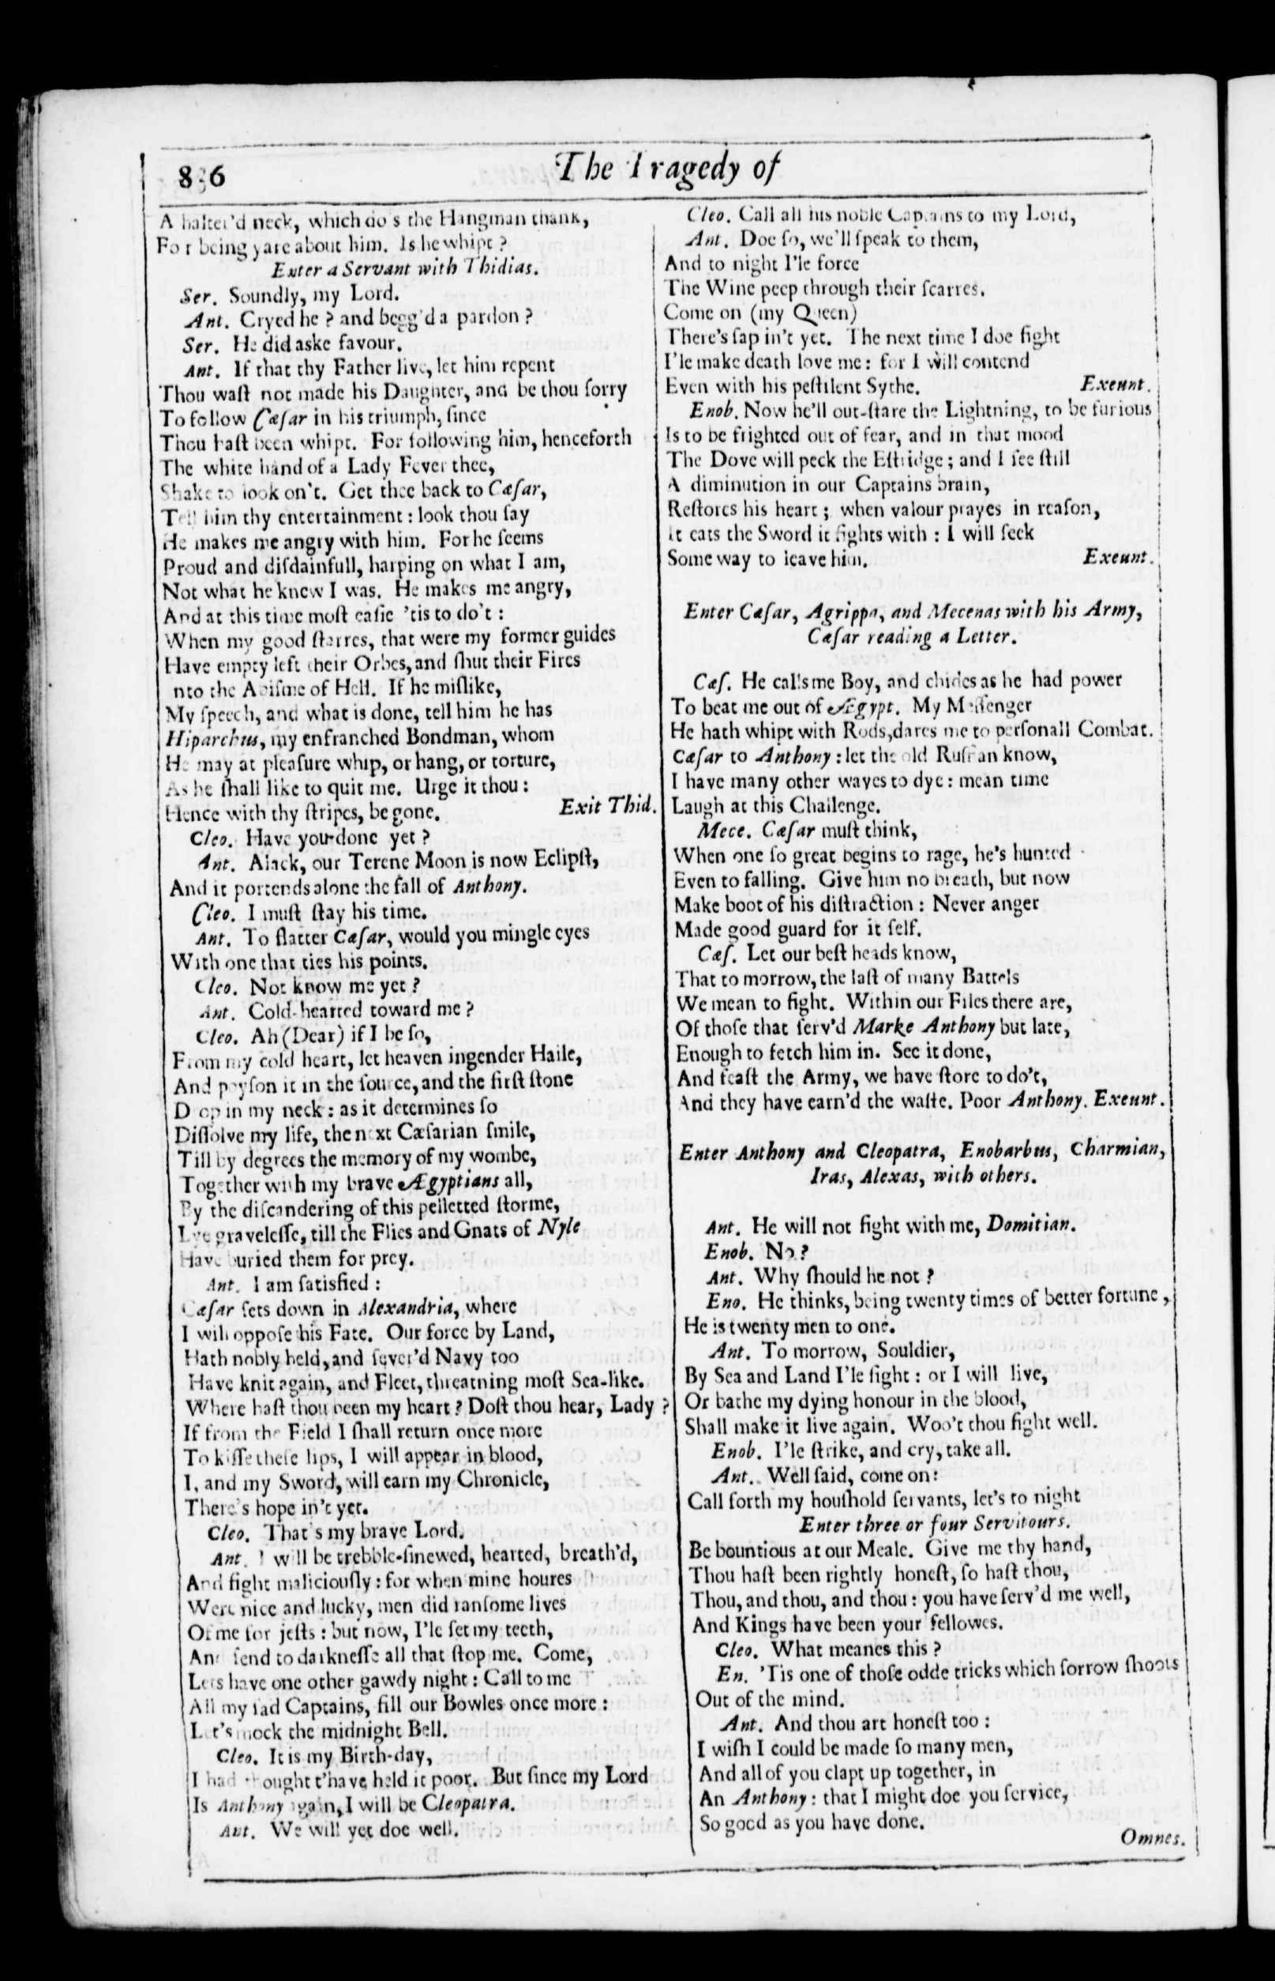 836
The Tragedy of
A halter'd neck, which do's the Hangman thank,
For being yare about him. Is he whipt?
Enter a Servant with Thidias.
Ser. Soundly, my Lord.
Ant. Cryed he? and begg'd a pardon?
Ser. He did aske favour.
Ant. If that thy Father live, let him repent
Thou waſt not made his Daughter, and be thou ſorry
To follow Cæſar in his triumph, ſince
Thou haſt been whipt. For following him, henceforth
The white hand of a Lady Fever thee,
Shake to look on't. Get thee back to Cæſar,
Tell him thy entertainment: look thou ſay
He makes me angry with him. For he ſeems
Proud and diſdainfull, harping on what I am,
Not what he knew I was. He makes me angry,
And at this time moſt eaſie 'tis to do't:
When my good ſtarres, that were my former guides
Have empty left their Orbes, and ſhut their Fires
nto the Abiſme of Hell. If he miſlike,
My ſpeech, and what is done, tell him he has
Hiparchus, my enfranched Bondman, whom
He may at pleaſure whip, or hang, or torture,
As he ſhall like to quit me. Urge it thou:
Hence with thy ſtripes, be gone. Exit Thid.
Cleo. Have you done yet?
Ant. Alack, our Terene Moon is now Eclipſt,
And it portends alone the fall of Anthony.
Cleo. I muſt ſtay his time.
Ant. To flatter Cæſar, would you mingle eyes
With one that ties his points.
Cleo. Not know me yet?
Ant. Cold-hearted toward me?
Cleo. Ah (Dear) if I be ſo,
From my cold heart, let heaven ingender Haile,
And poyſon it in the ſource, and the firſt ſtone
Drop in my neck: as it determines ſo
Diſſolve my life, the next Cæſarian ſmile,
Till by degrees the memory of my wombe,
Together with my brave Ægyptians all,
By the diſcandering of this pelletted ſtorme,
Lye graveleſſe, till the Flies and Gnats of Nyle
Have buried them for prey.
Ant. I am ſatisfied:
Cæſar ſets down in Alexandria, where
I will oppoſe his Fate. Our force by Land,
Hath nobly held, and ſever'd Navy too
Have knit again, and Fleet, threatning moſt Sea-like.
Where haſt thou been my heart? Doſt thou hear, Lady?
If from the Field I ſhall return once more
To kiſſe theſe lips, I will appear in blood,
I, and my Sword, will earn my Chronicle,
There's hope in't yet.
Cleo. That's my brave Lord.
Ant. I will be trebble-ſinewed, hearted, breath'd,
And fight maliciouſly: for when mine houres
Were nice and lucky, men did ranſome lives
Of me for jeſts: but now, I'le ſet my teeth,
And ſend to darkneſſe all that ſtop me. Come,
Lets have one other gawdy night: Call to me
All my ſad Captains, fill our Bowles once more:
Let's mock the midnight Bell.
Cleo. It is my Birth-day,
I had thought t'have held it poor. But ſince my Lord
Is Anthony again, I will be Cleopatra.
Ant. We will yet doe well.
Cleo. Call all his noble Captains to my Lord,
Ant. Doe ſo, we'll ſpeak to them,
And to night I'le force
The Wine peep through their ſcarres.
Come on (my Queen)
There's ſap in't yet. The next time I doe fight
I'le make death love me: for I will contend
Even with his peſtilent Sythe. Exeunt.
Enob. Now he'll out-ſtare the Lightning, to be furious
Is to be frighted out of fear, and in that mood
The Dove will peck the Eſtridge; and I ſee ſtill
A diminution in our Captains brain,
Reſtores his heart; when valour prayes in reaſon,
It eats the Sword it fights with: I will ſeek
Some way to leave him. Exeunt.
Enter Cæſar, Agrippa, and Mecenas with his Army,
Cæſar reading a Letter.
Cæſ. He calls me Boy, and chides as he had power
To beat me out of Ægypt. My Meſſenger
He hath whipt with Rods, dares me to perſonall Combat.
Cæſar to Anthony: let the old Ruffian know,
I have many other wayes to dye: mean time
Laugh at this Challenge.
Mece. Cæſar muſt think,
When one ſo great begins to rage, he's hunted
Even to falling. Give him no breath, but now
Make boot of his diſtraction: Never anger
Made good guard for it ſelf.
Cæſ. Let our beſt heads know,
That to morrow, the laſt of many Battels
We mean to fight. Within our Files there are,
Of thoſe that ſerv'd Marke Anthony but late,
Enough to fetch him in. See it done,
And feaſt the Army, we have ſtore to do't,
And they have earn'd the waſte. Poor Anthony. Exeunt.
Enter Anthony and Cleopatra, Enobarbus, Charmian,
Iras, Alexas, with others.
Ant. He will not fight with me, Domitian.
Enob. No?
Ant. Why ſhould he not?
Eno. He thinks, being twenty times of better fortune,
He is twenty men to one.
Ant. To morrow, Souldier,
By Sea and Land I'le fight: or I will live,
Or bathe my dying honour in the blood,
Shall make it live again. Woo't thou fight well.
Enob. I'le ſtrike, and cry, take all.
Ant. Well ſaid, come on:
Call forth my houſhold ſervants, let's to night
Enter three or four Servitours.
Be bountious at our Meale. Give me thy hand,
Thou haſt been rightly honeſt, ſo haſt thou,
Thou, and thou, and thou: you have ſerv'd me well,
And Kings have been your fellowes.
Cleo. What meanes this?
En. 'Tis one of thoſe odde tricks which ſorrow ſhoots
Out of the mind.
Ant. And thou art honeſt too:
I wiſh I could be made ſo many men,
And all of you clapt up together, in
An Anthony: that I might doe you ſervice,
So good as you have done.
Omnes.